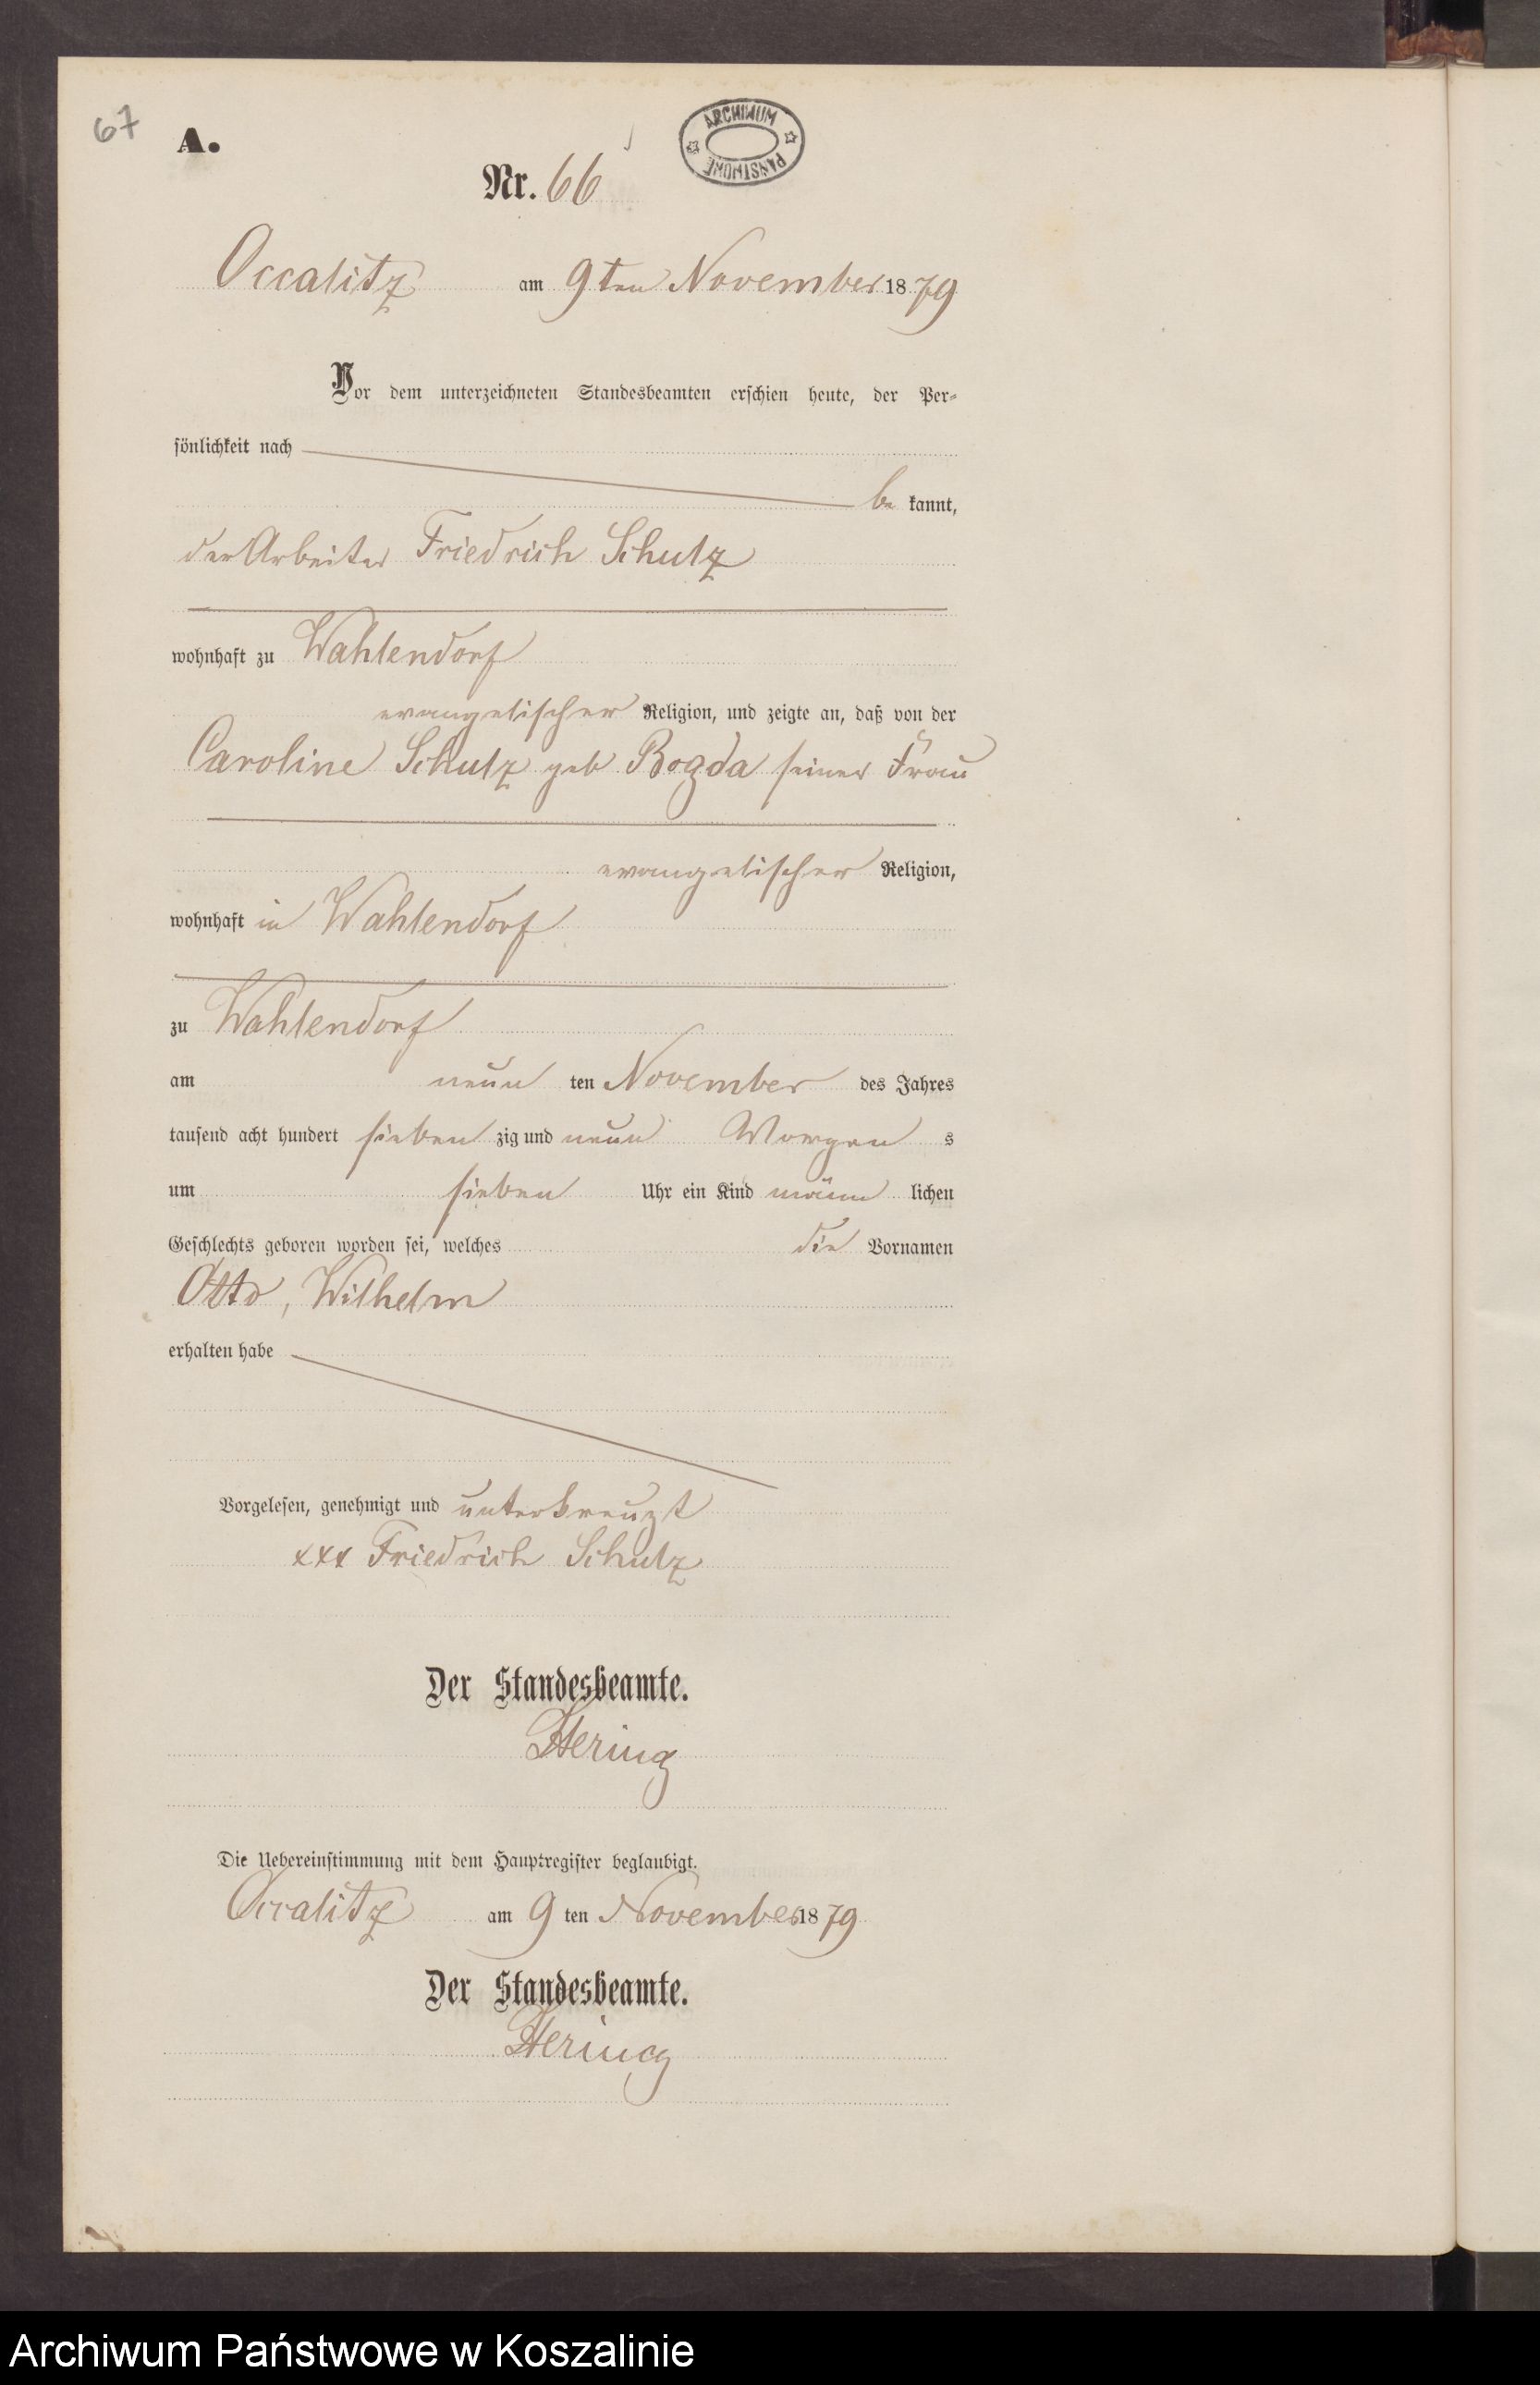 67
A.
ARCHIWUM PAŃSTWOWE
Nr. 66
Occalitz am 9ten November 1879
Vor dem unterzeichneten Standesbeamten erschien heute, der Per-
sönlichkeit nach
be kannt,
der Arbeiter Friedrich Schulz
wohnhaft zu Wahlendorf
evangelischer Religion, und zeigte an, daß von der
Caroline Schulz geb Bogda seiner Frau
evangelischer Religion,
wohnhaft in Wahlendorf
zu Wahlendorf
am neun ten November des Jahres
tausend acht hundert sieben zig und neun Morgen s
um sieben Uhr ein Kind männ lichen
Geschlechts geboren worden sei, welches die Vornamen
Otto, Wilhelm
erhalten habe
Vorgelesen, genehmigt und unterkreuzt
xxx Friedrich Schulz
Der Standesbeamte.
Hering
Die Uebereinstimmung mit dem Hauptregister beglaubigt.
Occalitz am 9 ten November 1879
Der Standesbeamte.
Hering
Archiwum Państwowe w Koszalinie